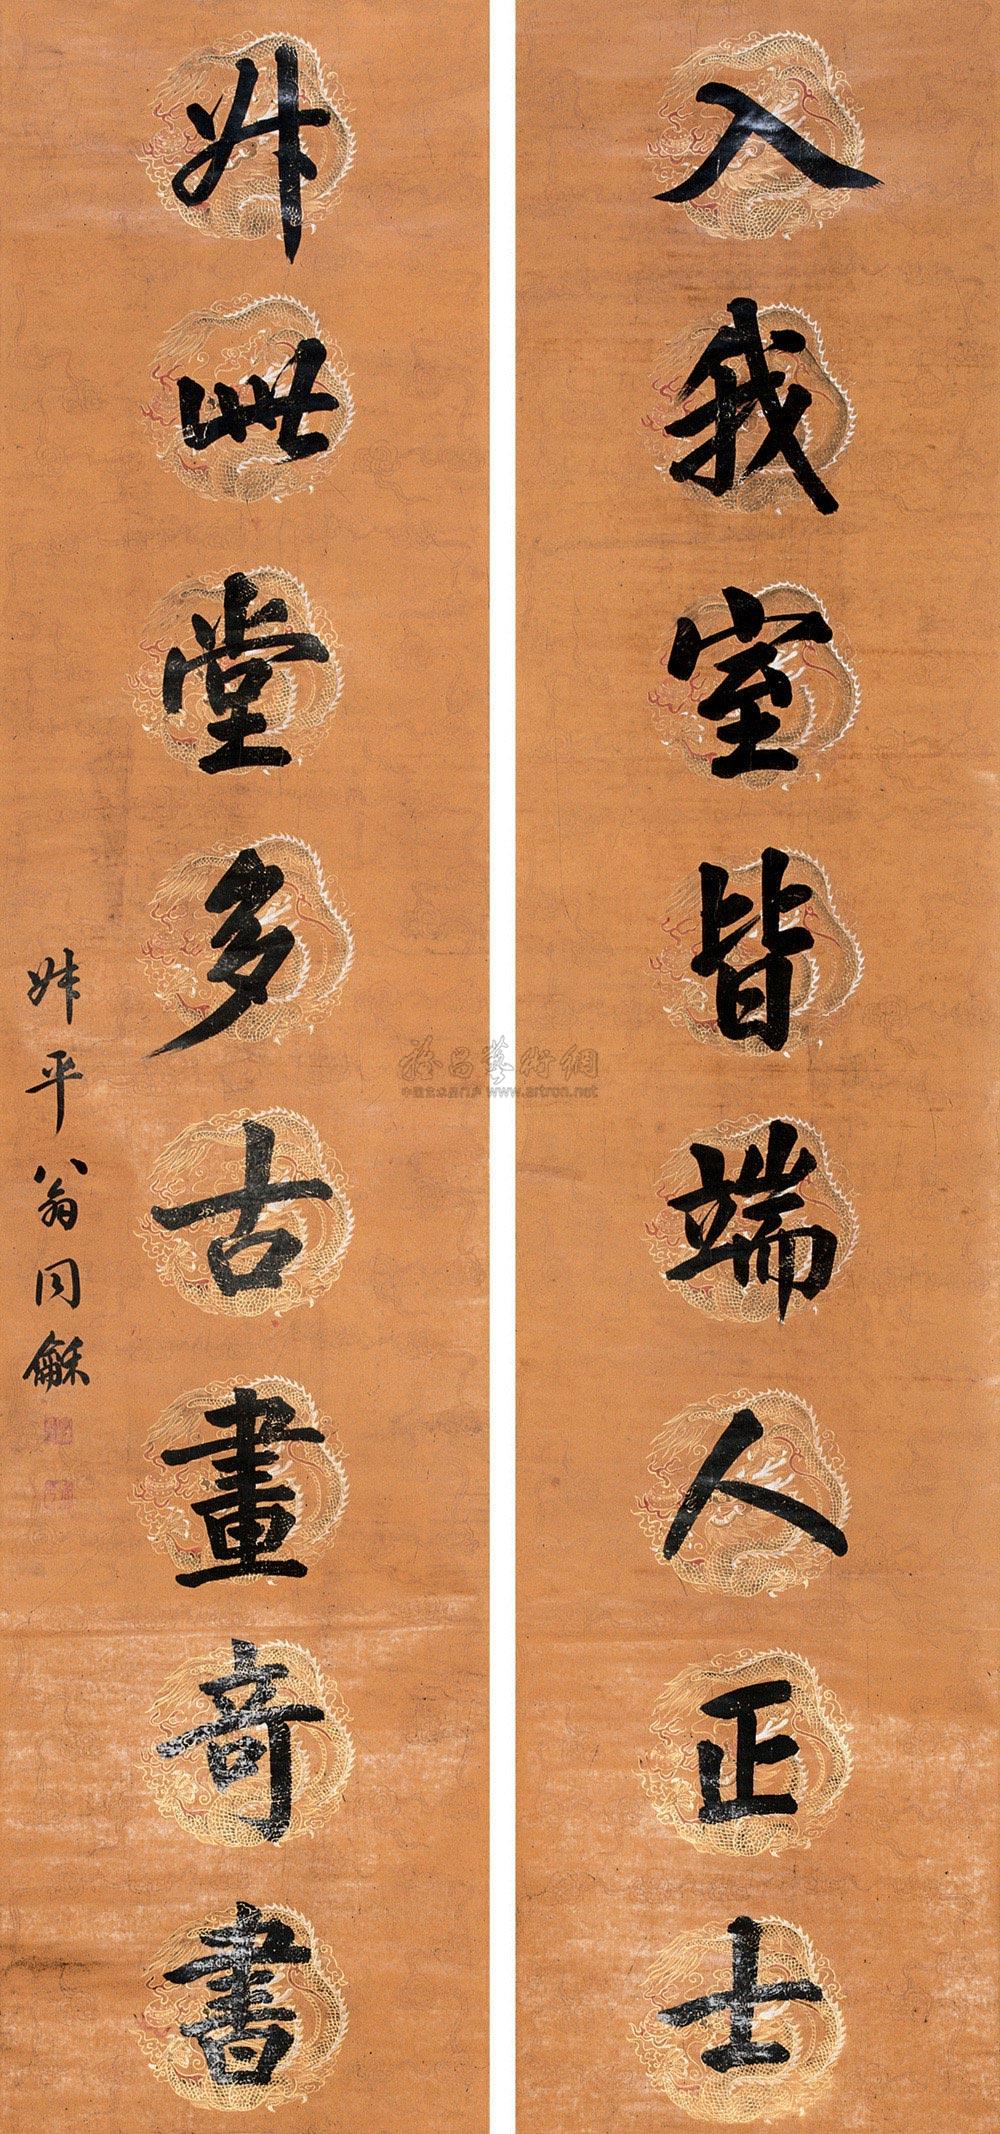 入我室皆端人正士
升此堂多古畫奇書
叔平翁同龢
雅昌藝術網
www.artron.net